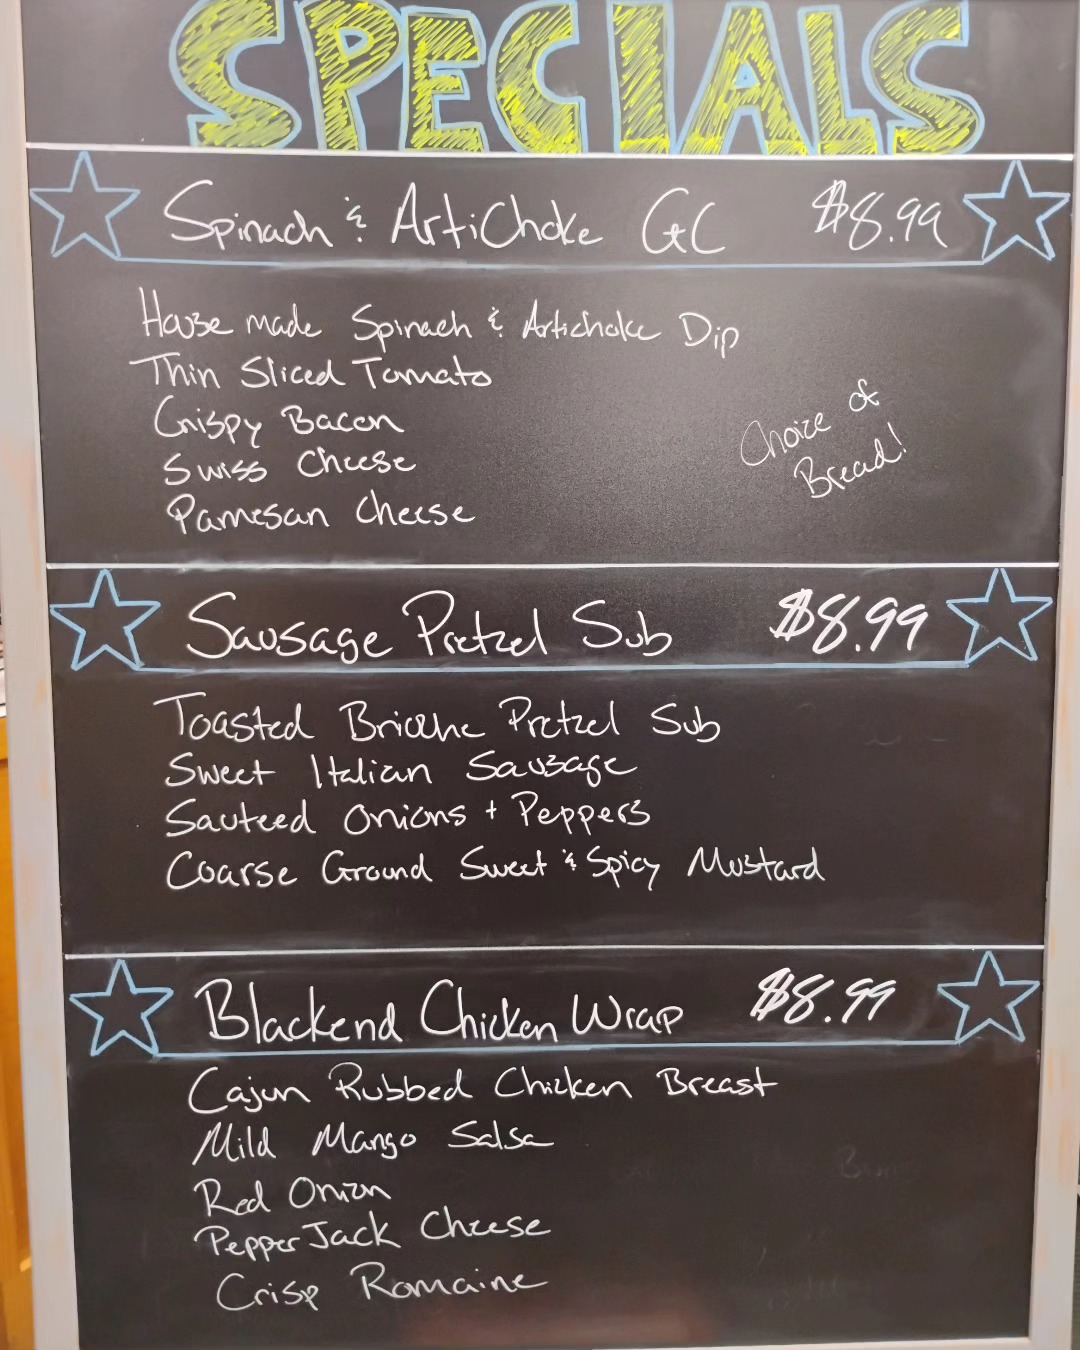 SPECIALS
Spinach & ArtiChoke GC $8.99
House made Spinach & Artichoke Dip
Thin Sliced Tomato
Crispy Bacon
Swiss Cheese
Parmesan Cheese
Choice of
Bread!
Sausage Pretzel Sub $8.99
Toasted Brioche Pretzel Sub
Sweet Italian Sausage
Sauteed Onions + Peppers
Coarse Ground Sweet & Spicy Mustard
Blackend Chicken Wrap $8.99
Cajun Rubbed Chicken Breast
Mild Mango Salsa
Red Onion
Pepper Jack Cheese
Crisp Romaine